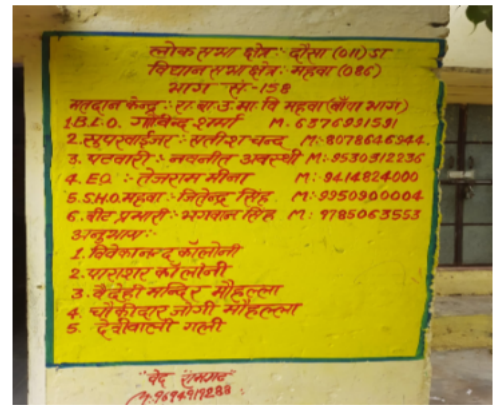 लोक सभा क्षेत्र :- दौसा (011) ST
विधान सभा क्षेत्र :- महवा (086)
भाग सं.-158
मतदान केन्द्र :- रा.बा.उ.मा.वि महवा (बाँया भाग)
1.B.L.O. गोविन्द शर्मा M:-6376991591
2.सुपरवाईजर :- सतीश चन्द M:-8078646944.
3. पटवारी :- नवनीत अवस्थी M:-9530312236
4. EO :- तेजराम मीना M:-9414824000
5. S.H.O. महवा :- जितेन्द्र सिंह M:-9950900004
6. बीट प्रभारी :- भगवान सिंह M:-9785063553
अनुभाग :-
1. विवेकानन्द कॉलोनी
2. पाराशर कॉलोनी
3. वैदेही मन्दिर मौहल्ला
4. चौकीदार जोगी मौहल्ला
5. देवीवाली गली
वेद रामगढ
M:9694919288